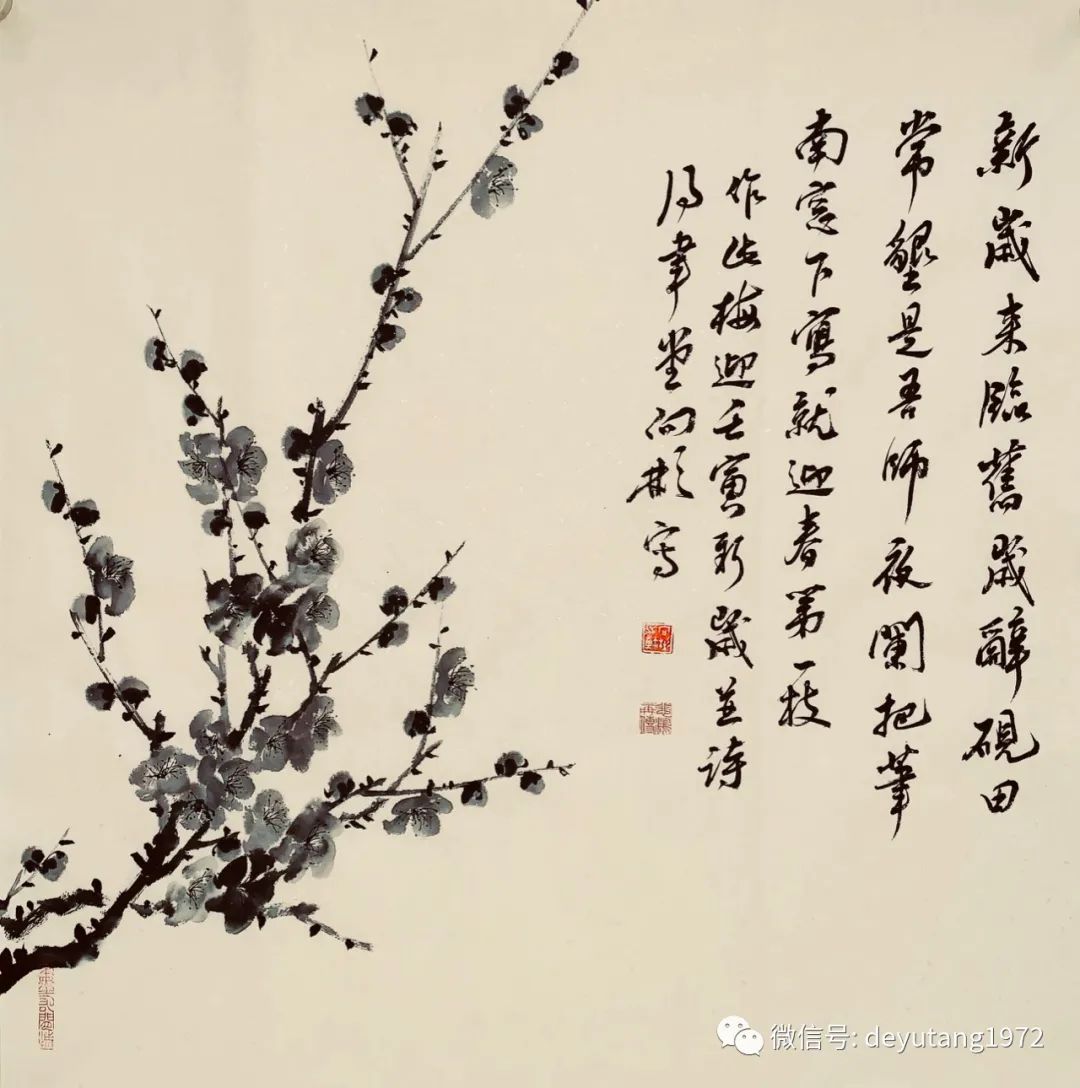 新歲来臨舊歲辭硯田
常墾是吾師夜闌把筆
南窓下寫就迎春第一枝
作此梅迎壬寅新歲並詩
写
微信号: deyutang1972